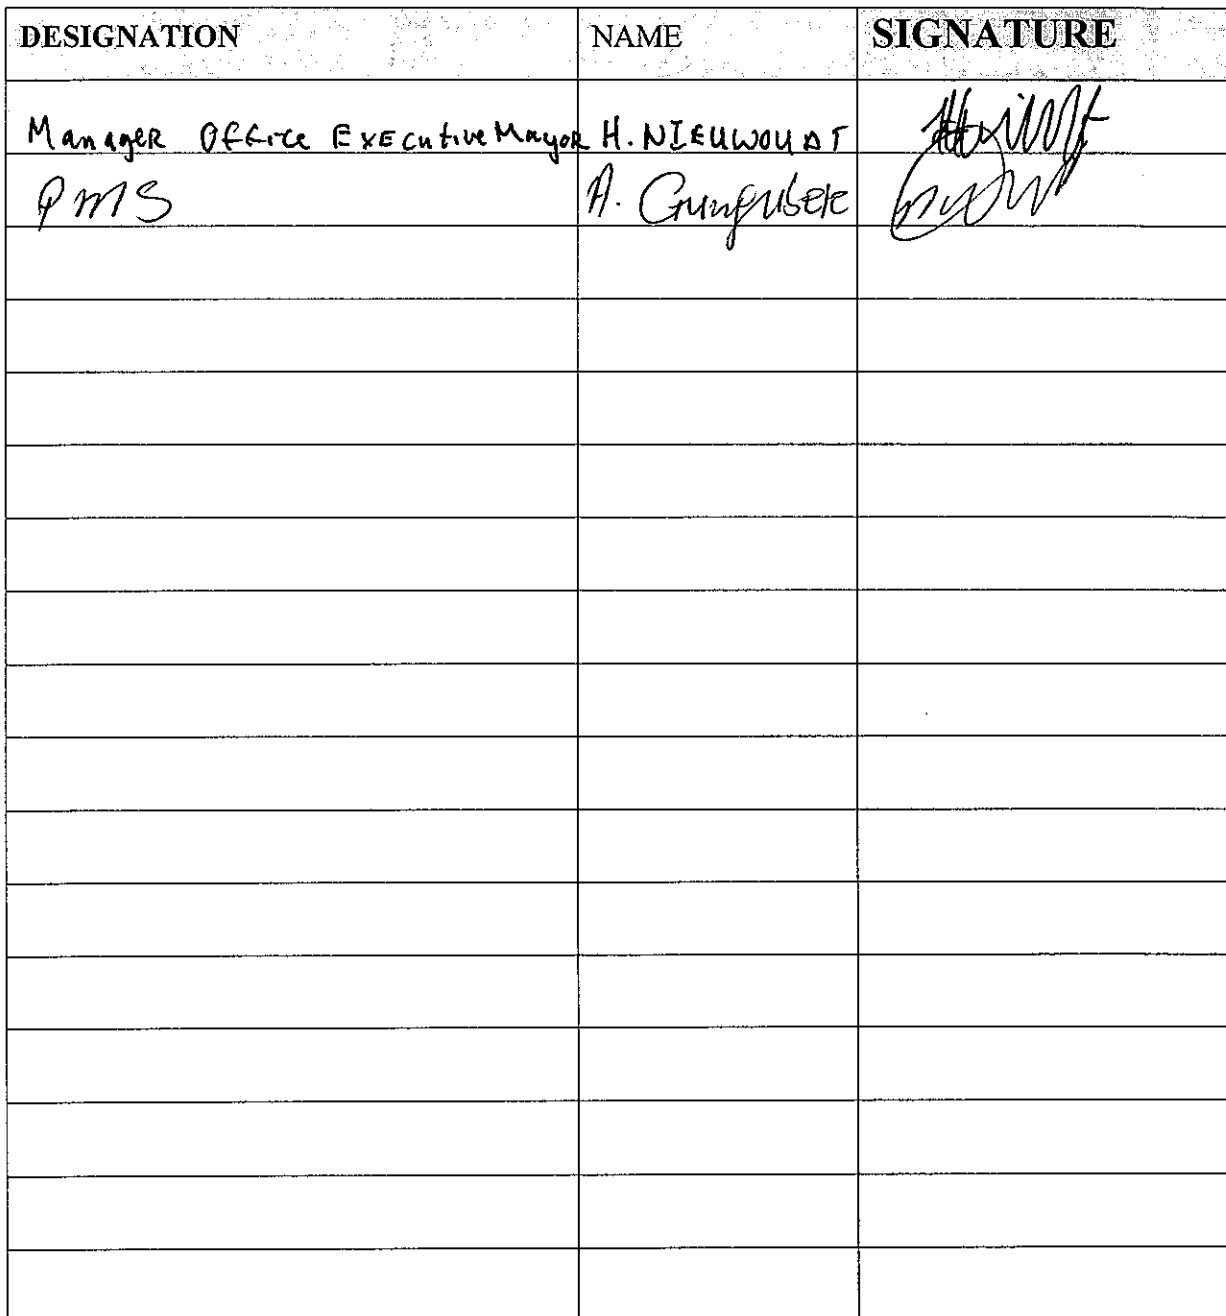 DESIGNATION NAME SIGNATURE
Manager Office Executive Mayor H. NIEUWOUDT
PMS A. Gungubele